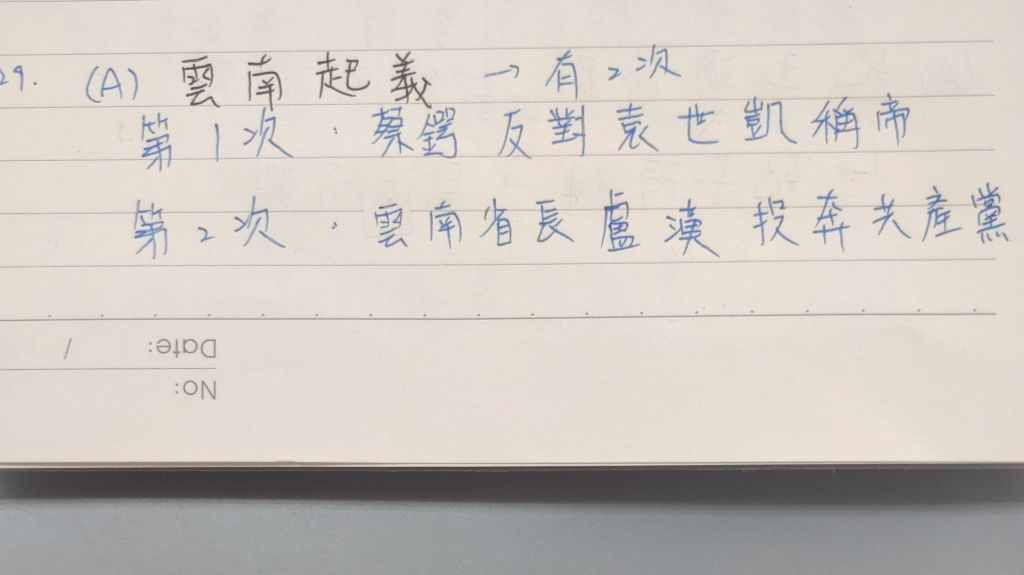 29. (A) 雲南起義 → 有2次
第1次:蔡鍔反對袁世凱稱帝
第2次:雲南省長盧漢投奔共產黨
Date: /
No: